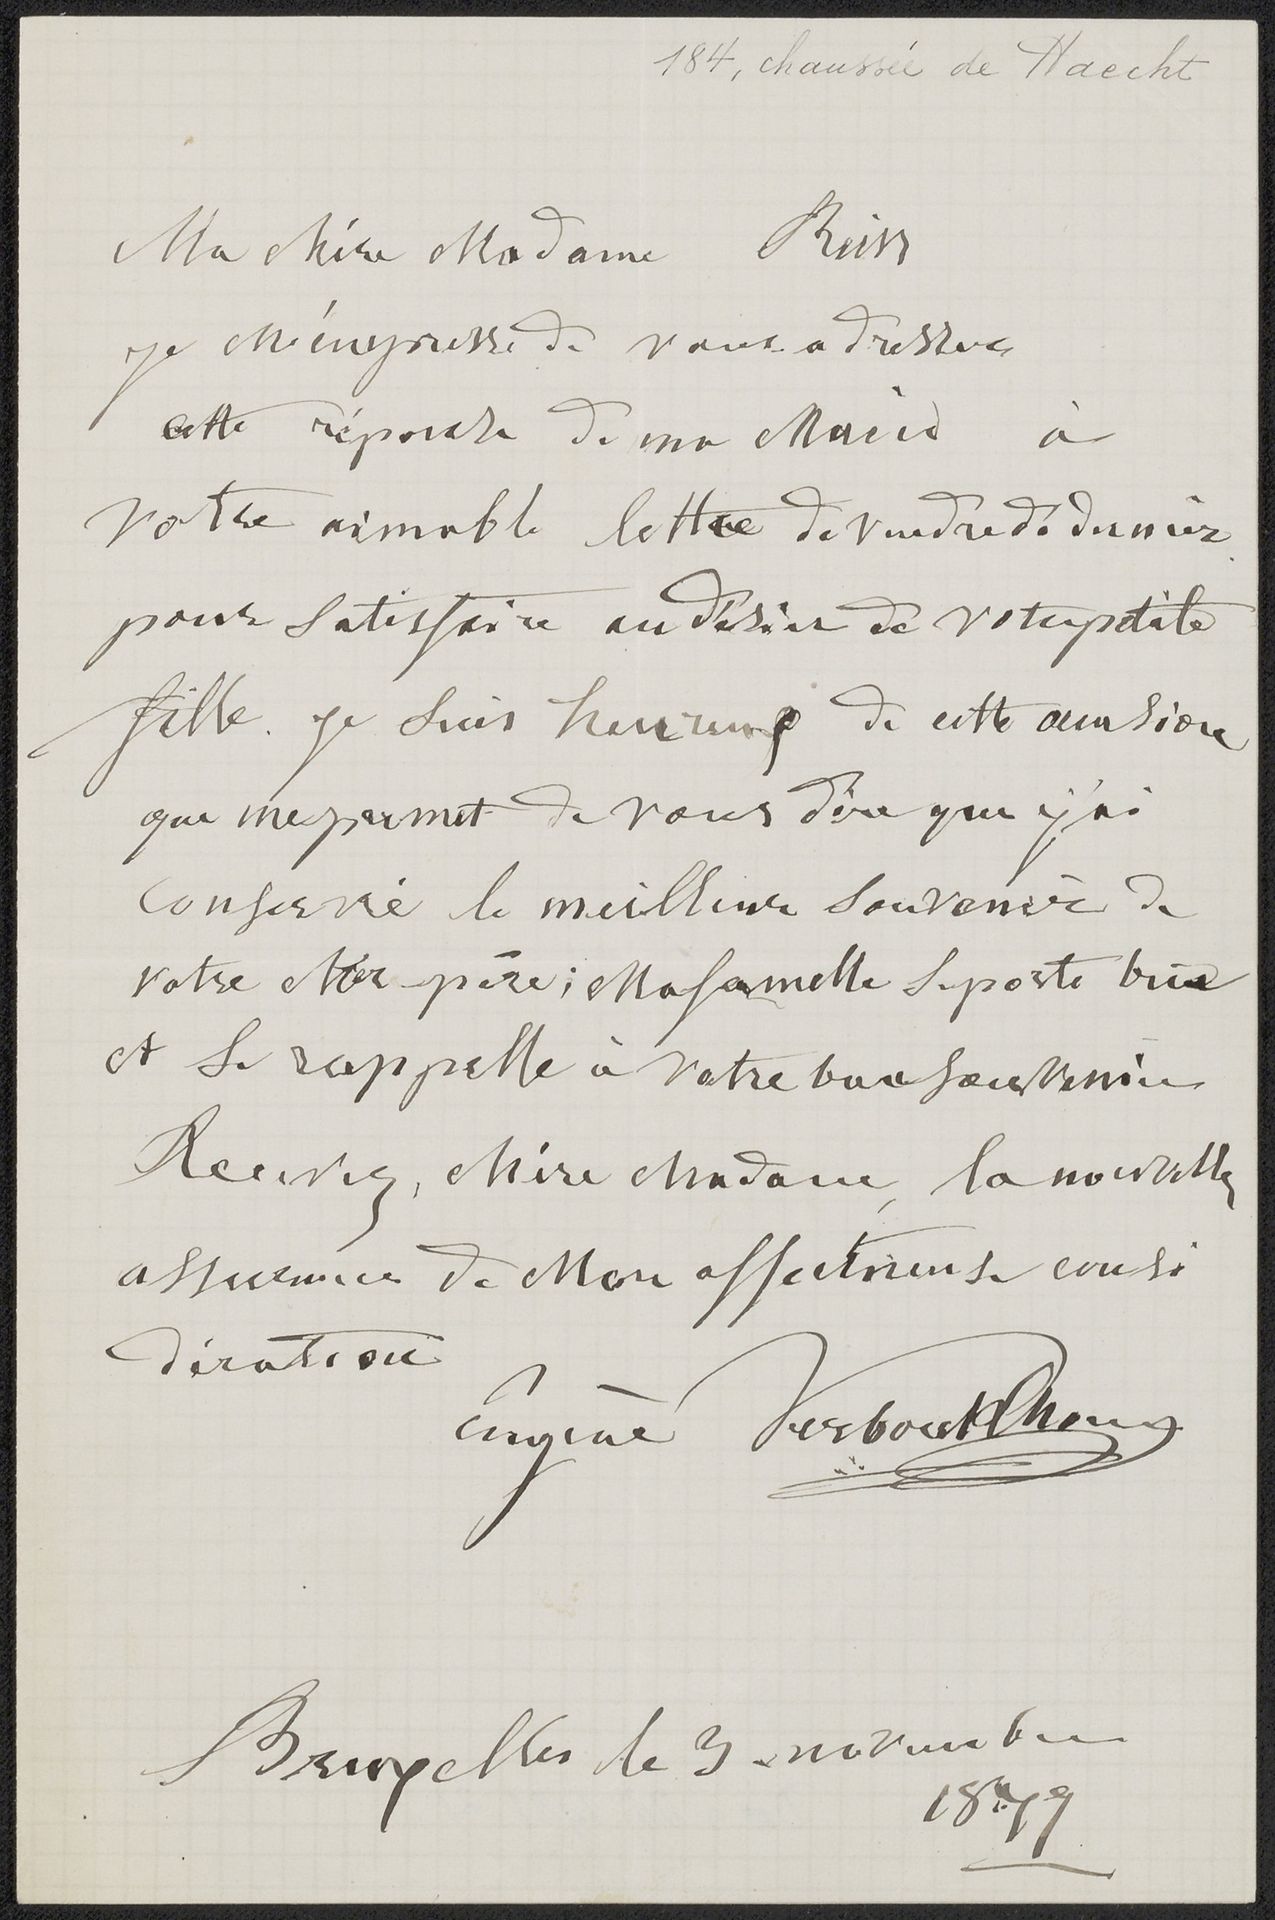 184, chaussée de Haecht
Ma chère Madame Reiss
je m'empresse de vous adresser
cette réponse de ma Main à
votre aimable lettre de vendredi dernier
pour satisfaire au désir de votre petite
fille. je suis heureux de cette occasion
que me permet de vous dire que j'ai
conservé le meilleur souvenir de
votre cher père; Ma famille se porte bien
et se rappelle à votre bon souvenir
Recevez, chère Madame, la nouvelle
assurance de Mon affectueuse consi
dération
Eugène Verboeckhoven
Bruxelles le 3 novembre
1879